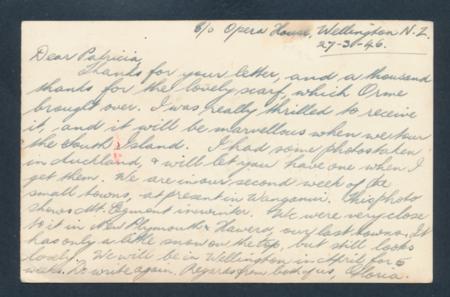 c/o Opera House, Wellington N.Z.
27-3-46.
Dear Patricia,
Thanks for your letter, and a thousand
thanks for the lovely scarf, which Orme
brought over. I was really thrilled to receive
it, and it will be marvellous when we tour
the South Island. I had some photos taken
in Auckland, & will let you have one when I
get them. We are in our second week of the
small towns, at present in Wanganui. This photo
shows Mt. Egmont in winter. We were very close
to it in New Plymouth & Hawera, our last towns. It
has only a little snow on the top, but still looks
lovely. We will be in Wellington in April for 5
weeks. Do write again. Regards from both of us, Gloria.